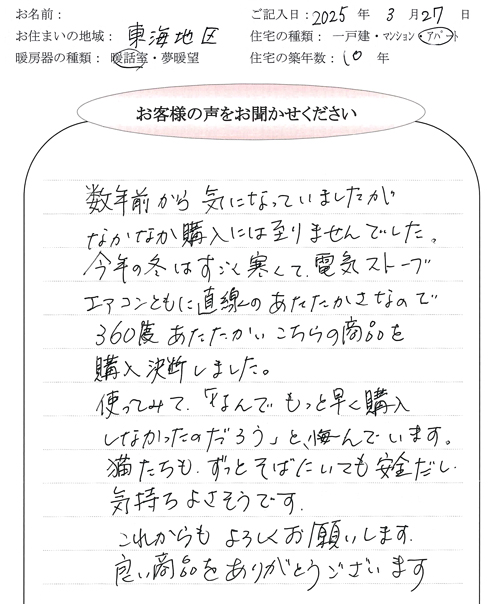 お名前：
ご記入日：2025 年 3 月 27 日
お住まいの地域： 東海地区
住宅の種類： 一戸建・マンション・アパート
暖房器の種類： 暖話室・夢暖望
住宅の築年数： 10 年
お客様の声をお聞かせください
数年前から 気になっていましたが
なかなか購入には至りませんでした。
今年の冬はすごく寒くて、電気ストーブ
エアコンともに直線のあたたかさなので
360度 あたたかい こちらの商品を
購入決断しました。
使ってみて、「なんで もっと早く購入
しなかったのだろう」と、悔んでいます。
猫たちも、ずっとそばにいても安全だし、
気持ちよさそうです。
これからも よろしくお願いします。
良い商品をありがとうございます